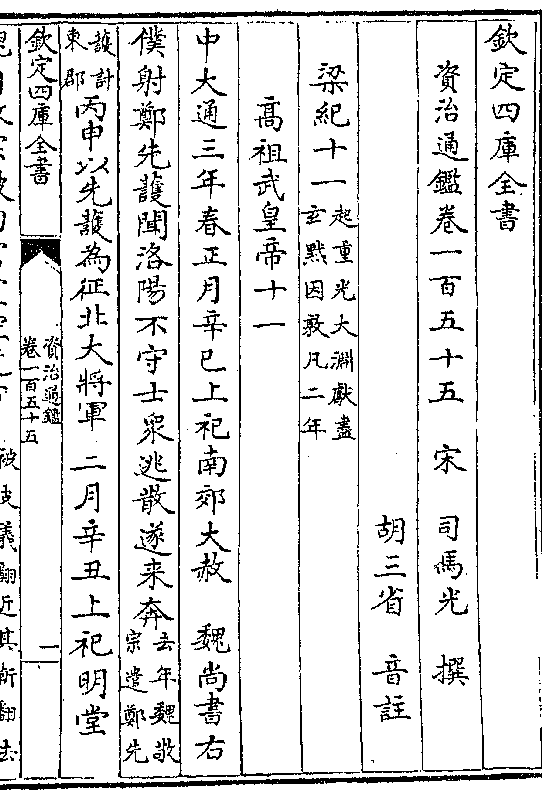 欽定四庫全書
資治通鑑卷一百五十五 宋 司馬光 撰
胡三省 音註
梁紀十一起重光大淵獻盡玄黓困敦凡二年
高祖武皇帝十一
中大通三年春正月辛巳上祀南郊大赦 魏尚書右
僕射鄭先護聞洛陽不守士衆逃散遂来奔去年魏敬宗遣鄭先
護討東郡丙申以先護為征北大將軍 二月辛丑上祀明堂
欽定四庫全書 資治通鑑卷一百五十五 一